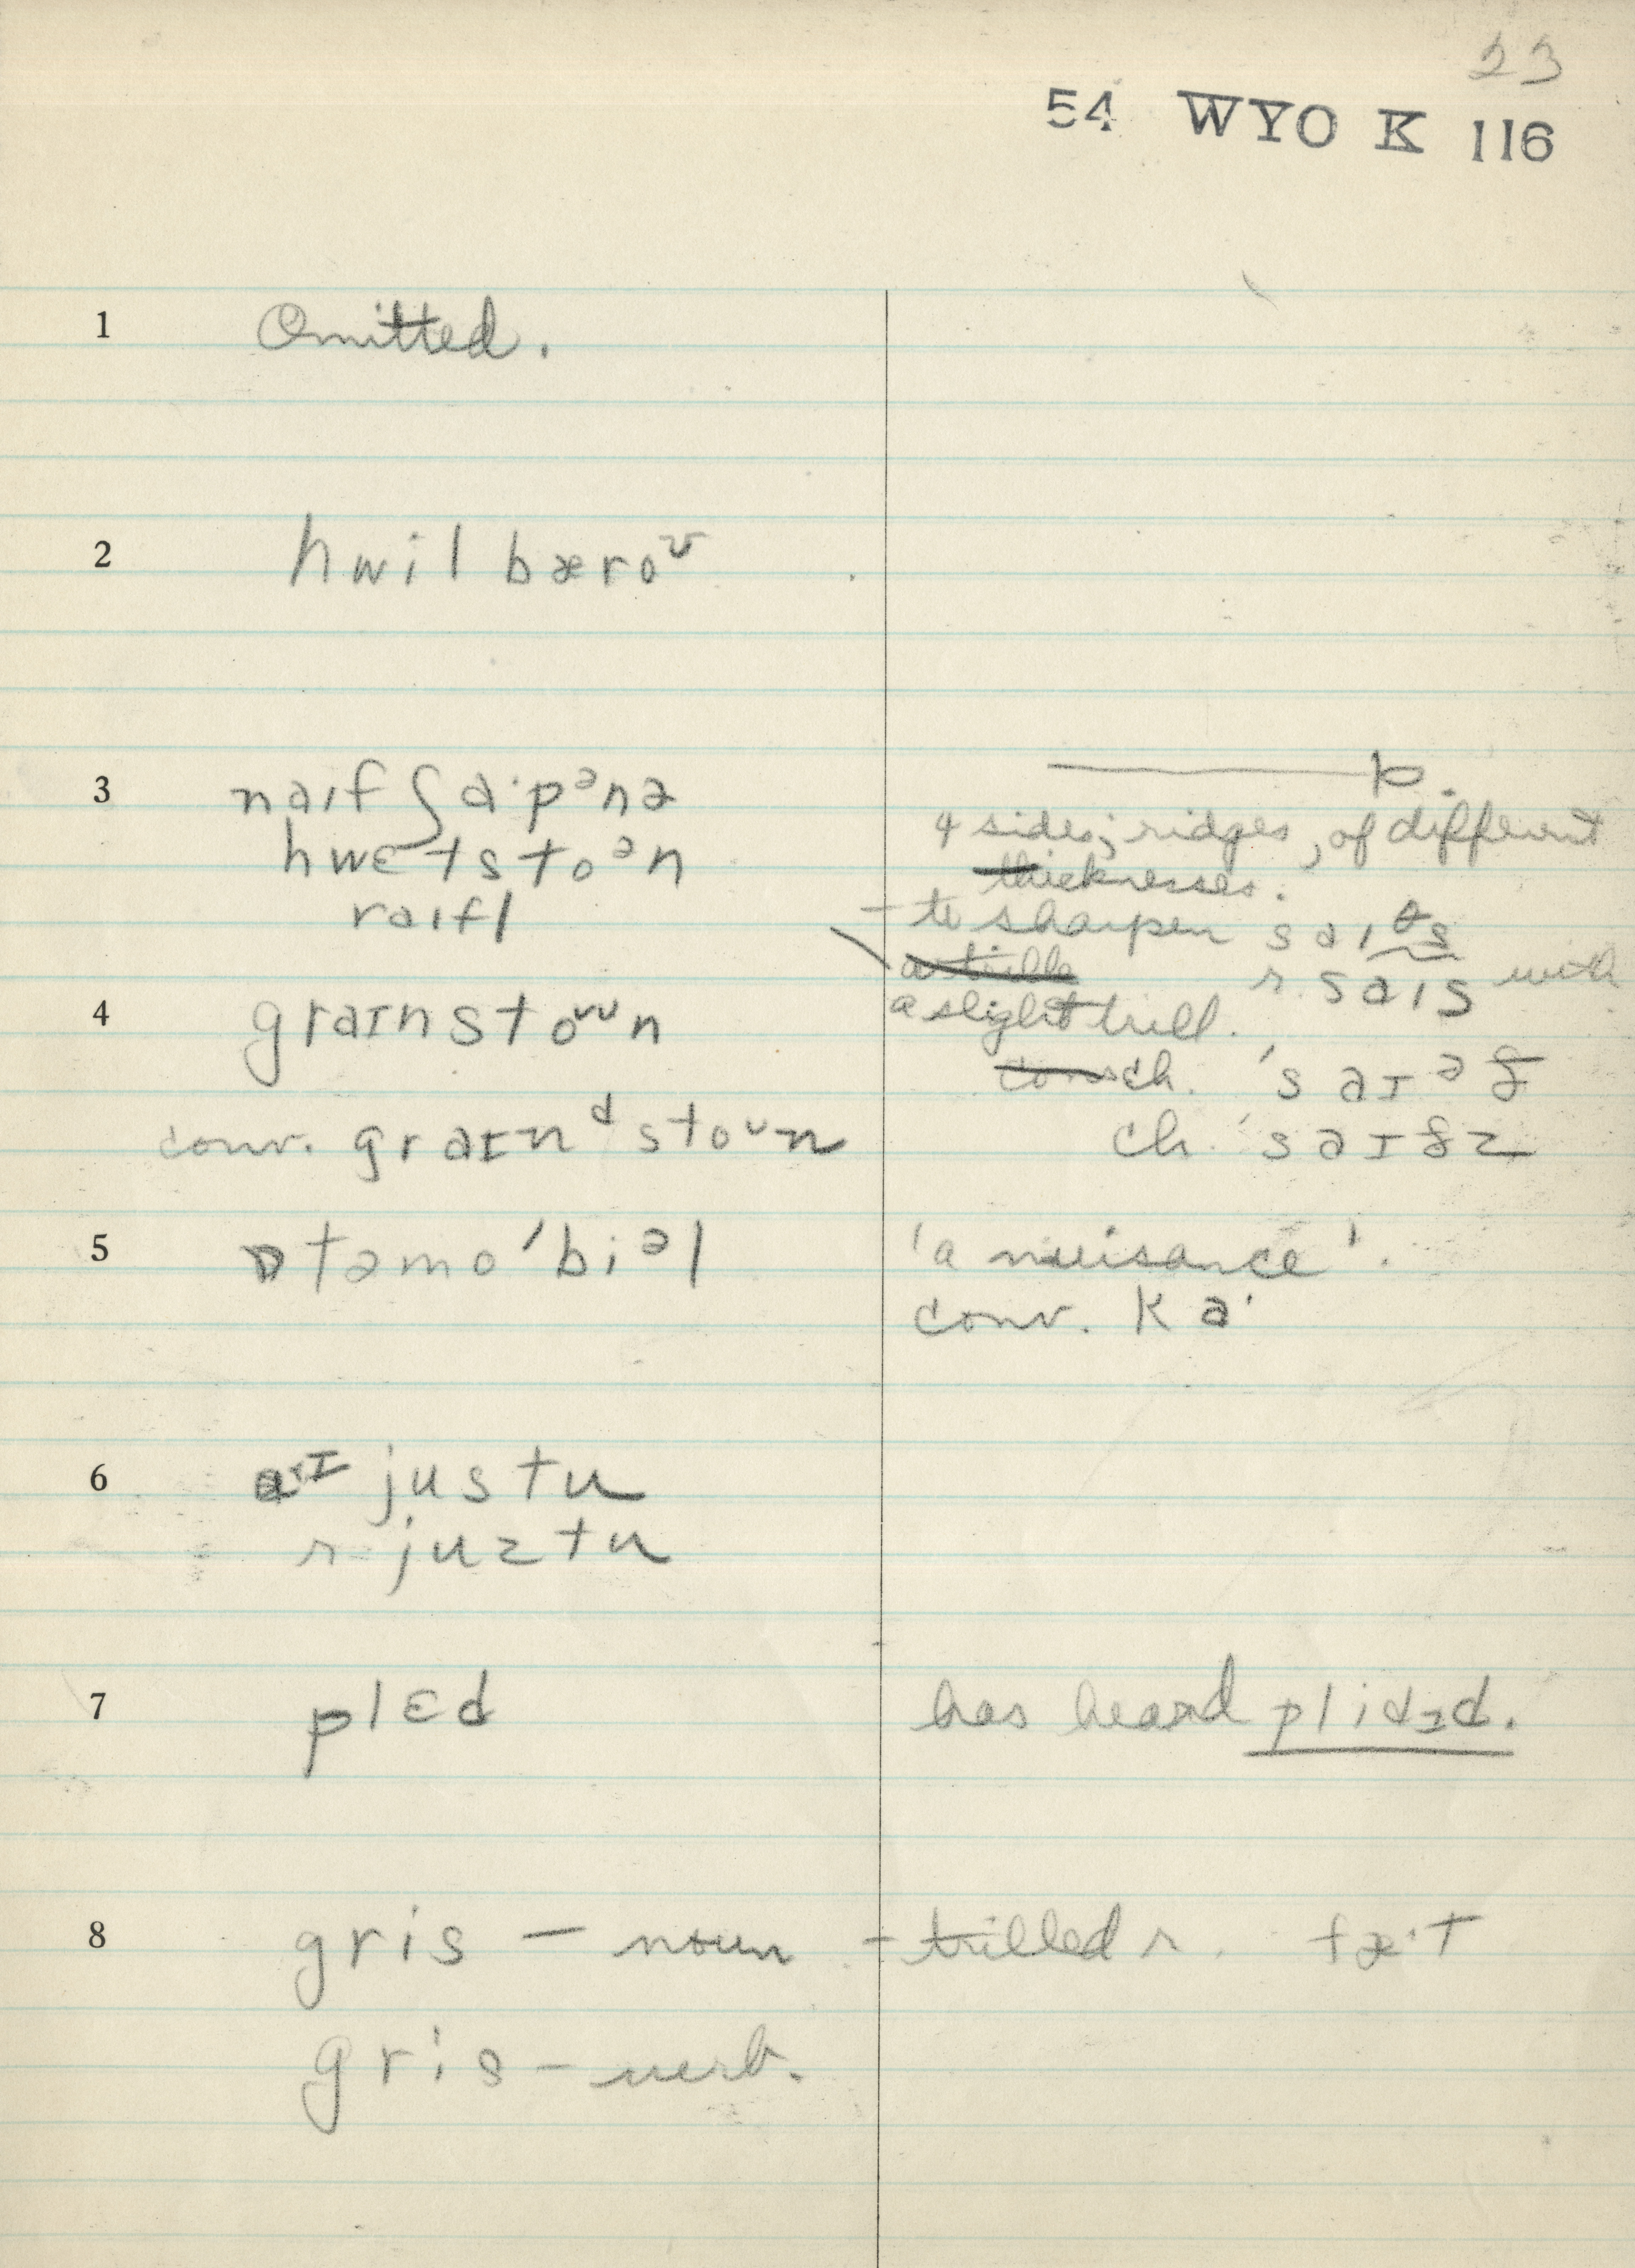 23
54 WYO K 116
1 Omitted.
2 hwil bæroᶷ
3 naɪf ʃɑ·pᵊnə
hwɛtstoᵊn
raɪfl
p.
4 sides; ridges, of different
thicknesses.
- to sharpen saɪθs
r. saɪs with
a slight trill.
4 graɪnstoᶷn
conv. graɪnᵈstoᶷn
ch. 'saɪᵊð
ch. 'saɪðz
5 ɒtəmo'biᵊl
'a nuisance'.
conv. ka·
6 justu
r. juztu
7 plɛd
has heard plidɪd.
8 gris — noun - trilled r. fæ·t
gris - verb.